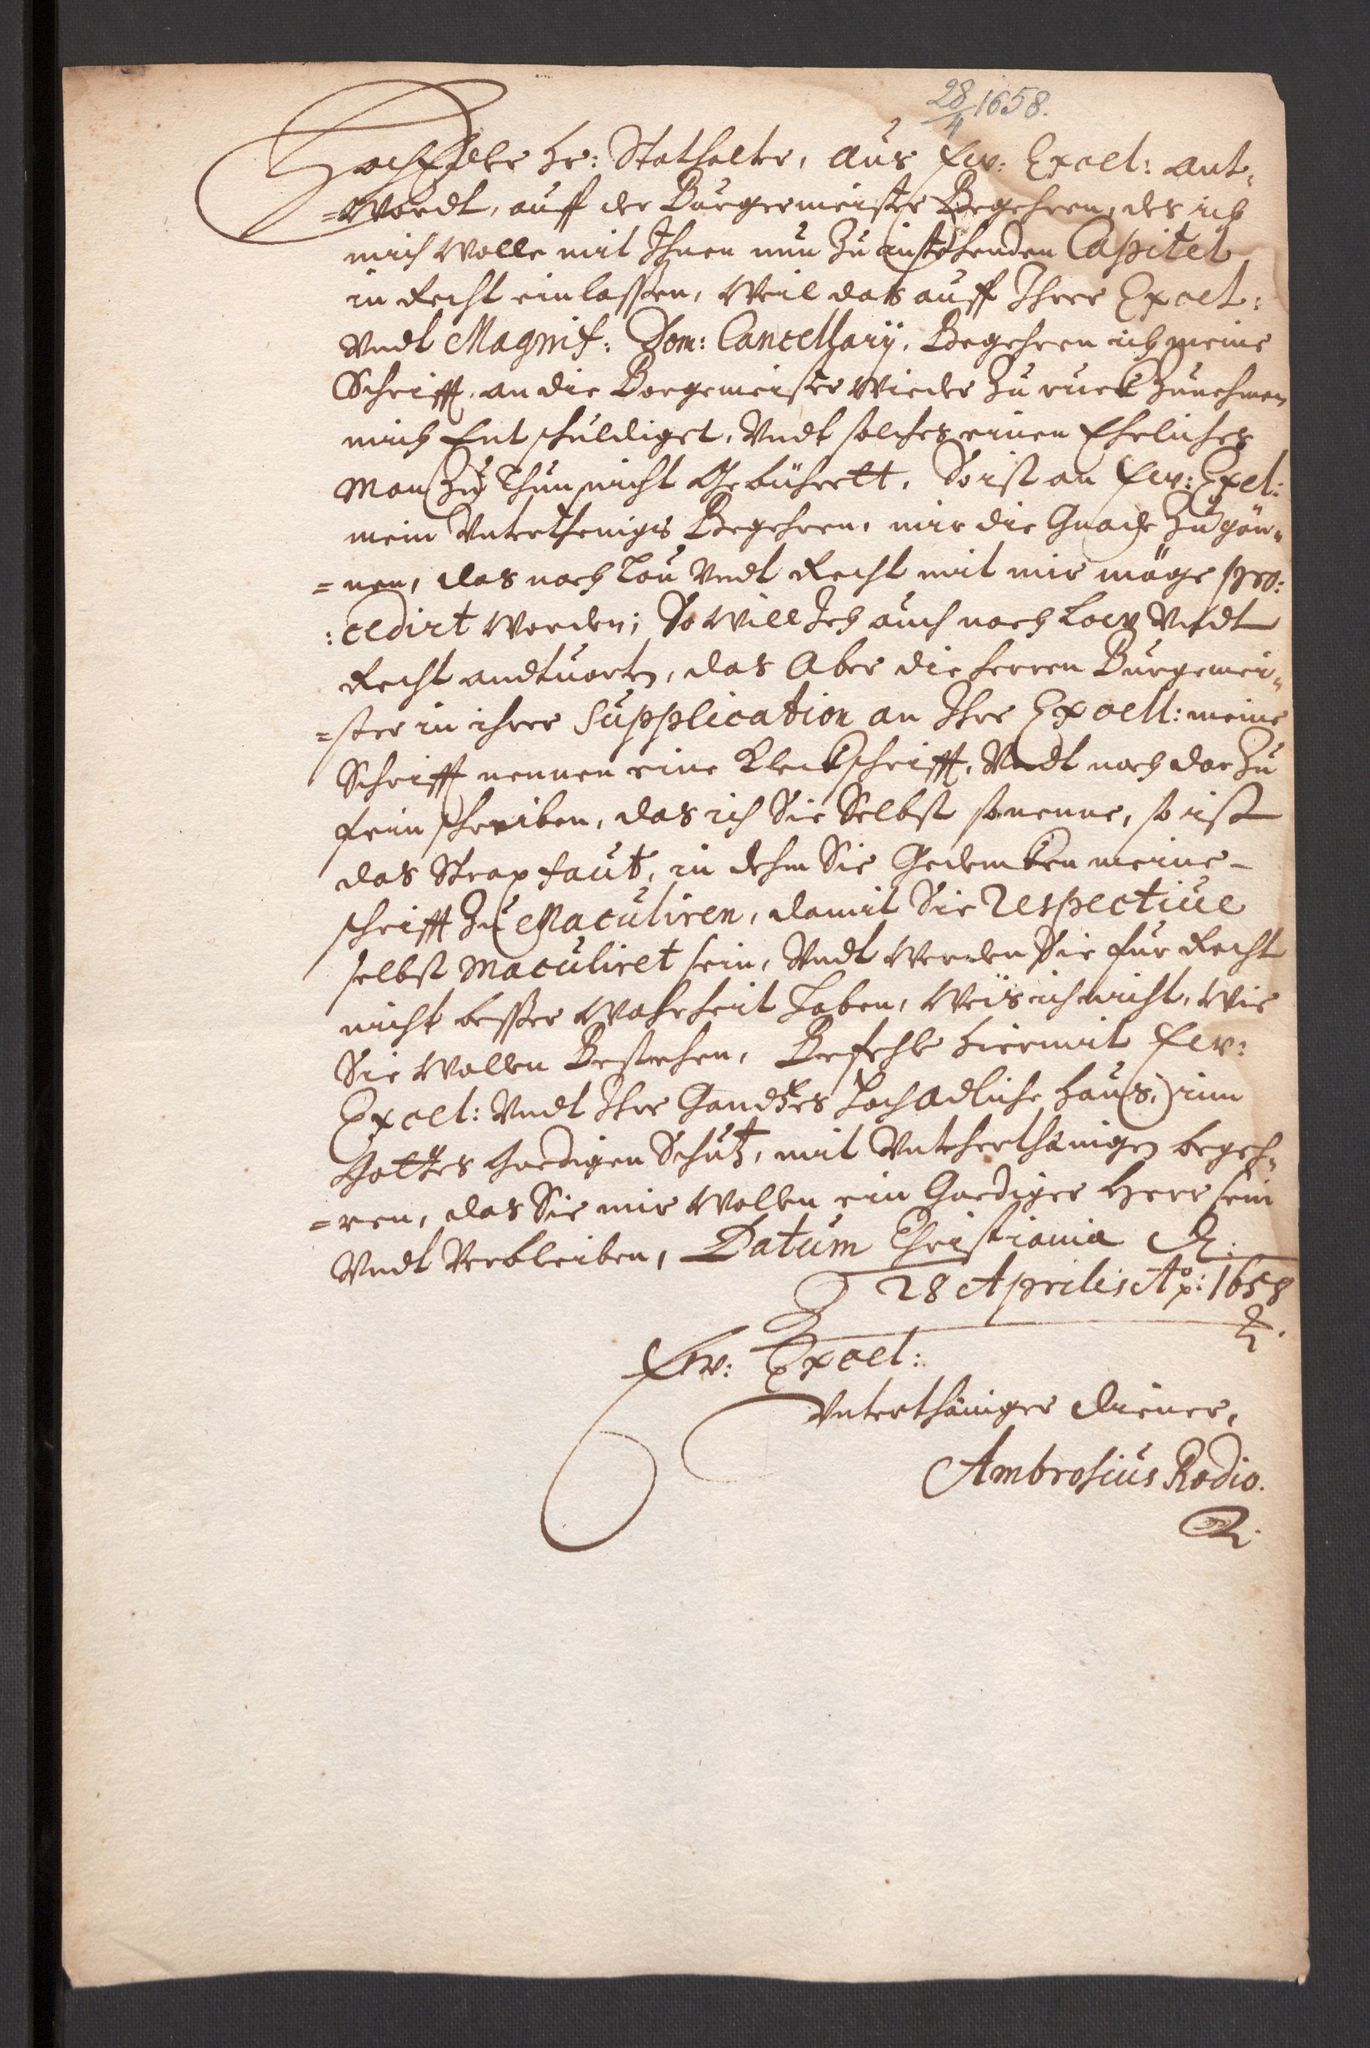 28/4 1658.
HochEdler Hr: Stathalter, Aus Ew: Excel: ant-
=Wordt, auff der Burgermeister Begehren, das ich
mich wolle mit Ihnen nun zu instehenden Capitel
in Recht einlassen, Weil das auff Ihrer Excel:
Vndt Magnif: Dom: Cancellarij, Begehren ich meine
Schrifft, an die Borgemeister wieder zu ruck zunehmen
mich Entschuldiget, Vndt solches einen Ehrliches
Man zu Thun nicht Gebührett, So ist an Ew: Exel:
mein Vnterthenigs Begehren, mir die Gnade zu gön-
=nen, das nach Lou Vndt Recht mit mir möge pro:
:cedirt werden; So will Ich auch nach Low Vndt
Recht andtworten, das Aber die Herren Burgemei-
=ster in ihrer Supplication an Ihr Excell: meine
Schrifft nennen eine Kleckschrifft, Vndt noch dar zu
sein schreiben, das ich Sie Selbst so nenne, so ist
das Strax faut, in dehm Sie Gedencken meine
schrifft zu Maculiren, damit Sie respective
selbst maculiret sein, Vndt werden Sie für Recht
nicht besser Wahrheit haben, Weis ich nicht, Wie
Sie wollen Bestehen, Befehle hiermit Ew:
Excel: Vndt Ihr Gandtzes hochadliche Haus, inn
Gottes gnedigen Schutz, mit Vnterthänigen begeh-
=ren, das Sie mir wollen ein Gnediger Herr sein
Vndt Verbleiben, Datum Christiania d:
28 Aprilis Ao: 1658
Ew: Excel:
Vnterthäniger Diener,
Ambrosius Rodio.